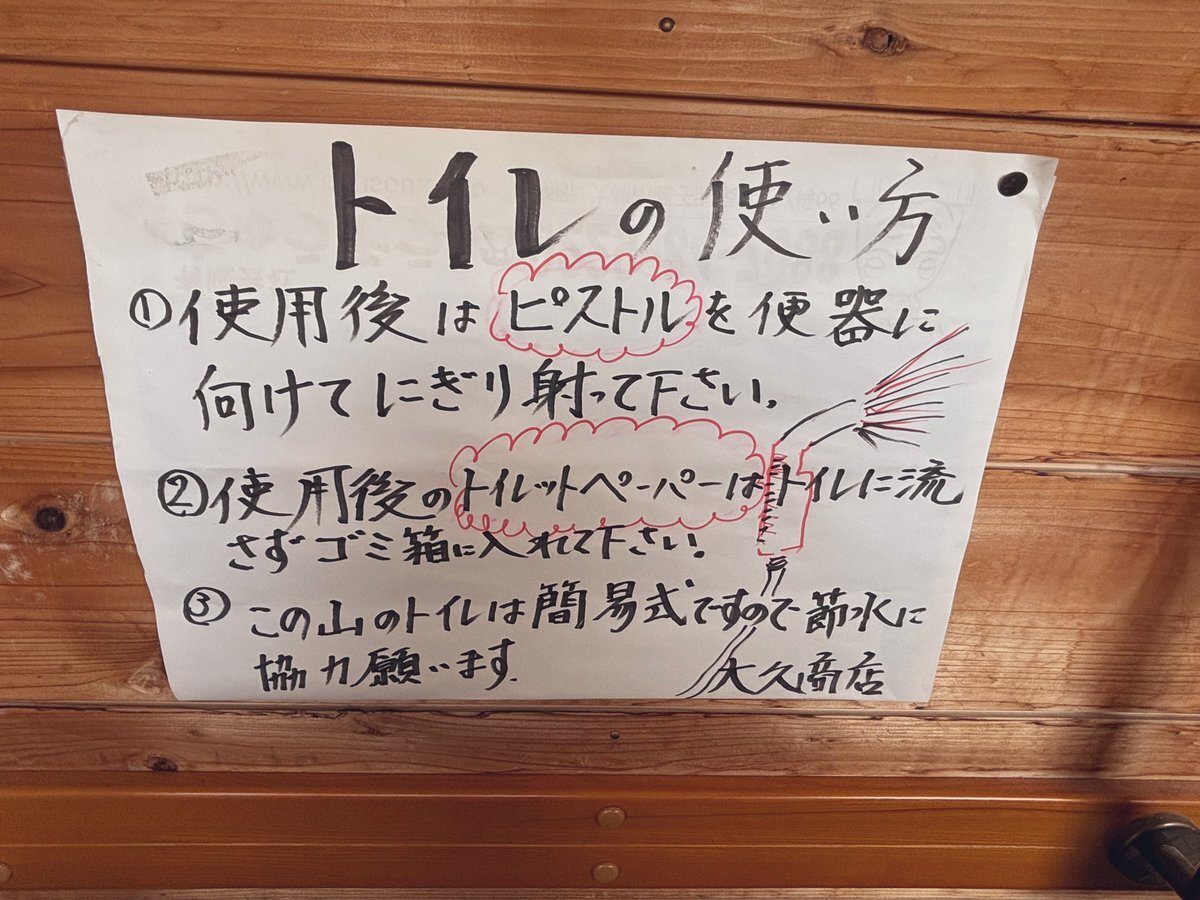 トイレの使い方
①使用後はピストルを便器に
向けてにぎり射って下さい。
②使用後のトイレットペーパーはトイレに流
さずゴミ箱に入れて下さい。
③この山のトイレは簡易式ですので節水に
協力願います.
大久商店